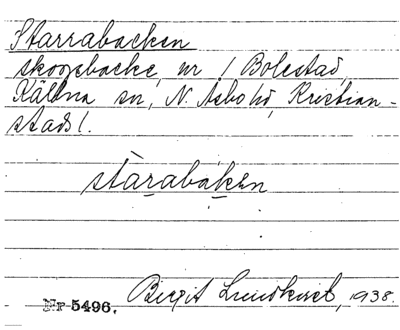 Starrabacken
skogsbacke, nr 1 Bolestad,
Källna sn, N. Åsbo hd, Kristian-
stads l.
stàrabáken
Nr 5496. Birgit Lundkvist, 1938.